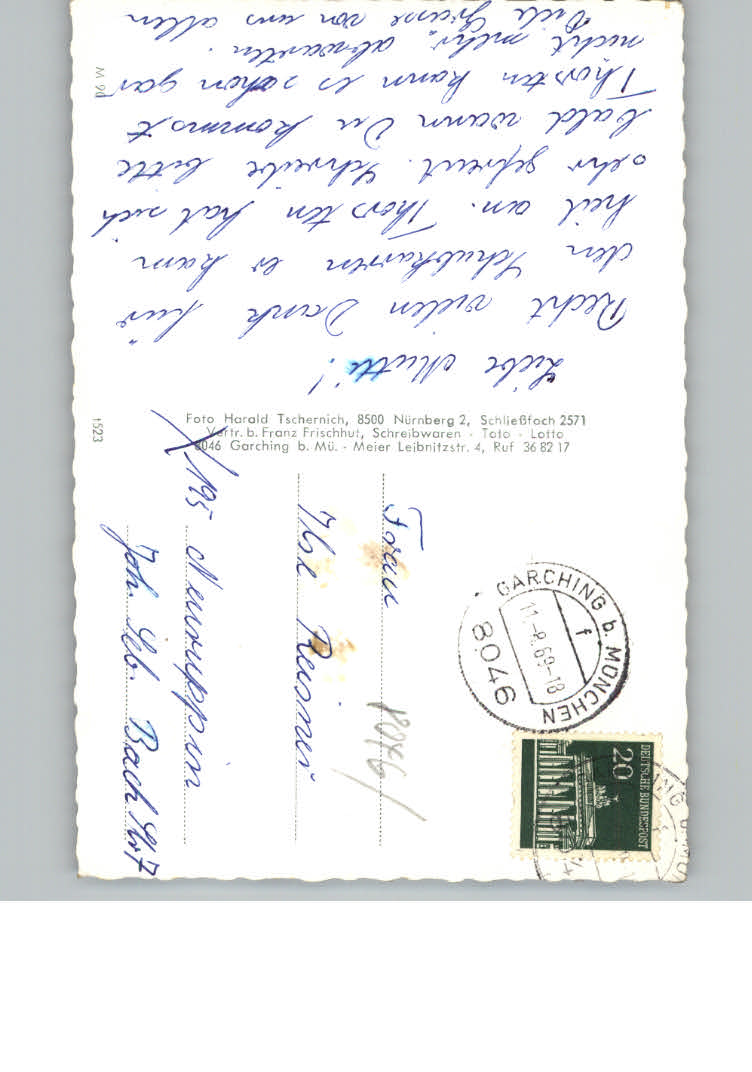 Liebe Mutti!
Recht vielen Dank für
den Schulkarren er kam
heil an. Thorsten hat sich
sehr gefreut. Schreibe bitte
bald wann Du kommst
Thorsten kann es schon gar
nicht mehr abwarten.
Viele Grüsse von uns allen
M 90
1523
Foto Harald Tschernich, 8500 Nürnberg 2, Schließfach 2571
Vertr. b. Franz Frischhut, Schreibwaren - Toto - Lotto
8046 Garching b. Mü. - Meier Leibnitzstr. 4, Ruf 36 82 17
GARCHING b. MÜNCHEN
11.-8.69-18
f
8046
DEUTSCHE BUNDESPOST
20
Frau
Ilse Reisner
X 195 Neuruppin
Joh. Seb. Bach Str 7